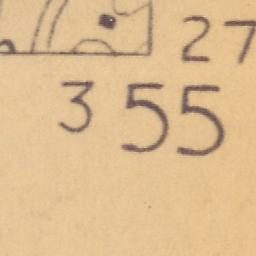 27
3 55